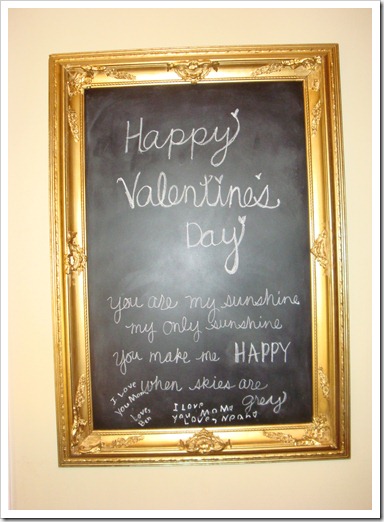 Happy
Valentine's
Day
you are my sunshine
my only sunshine
you make me HAPPY
when skies are
gray
I Love
you Mom
Love,
Ben
I Love
you MoMo
Love, Noah